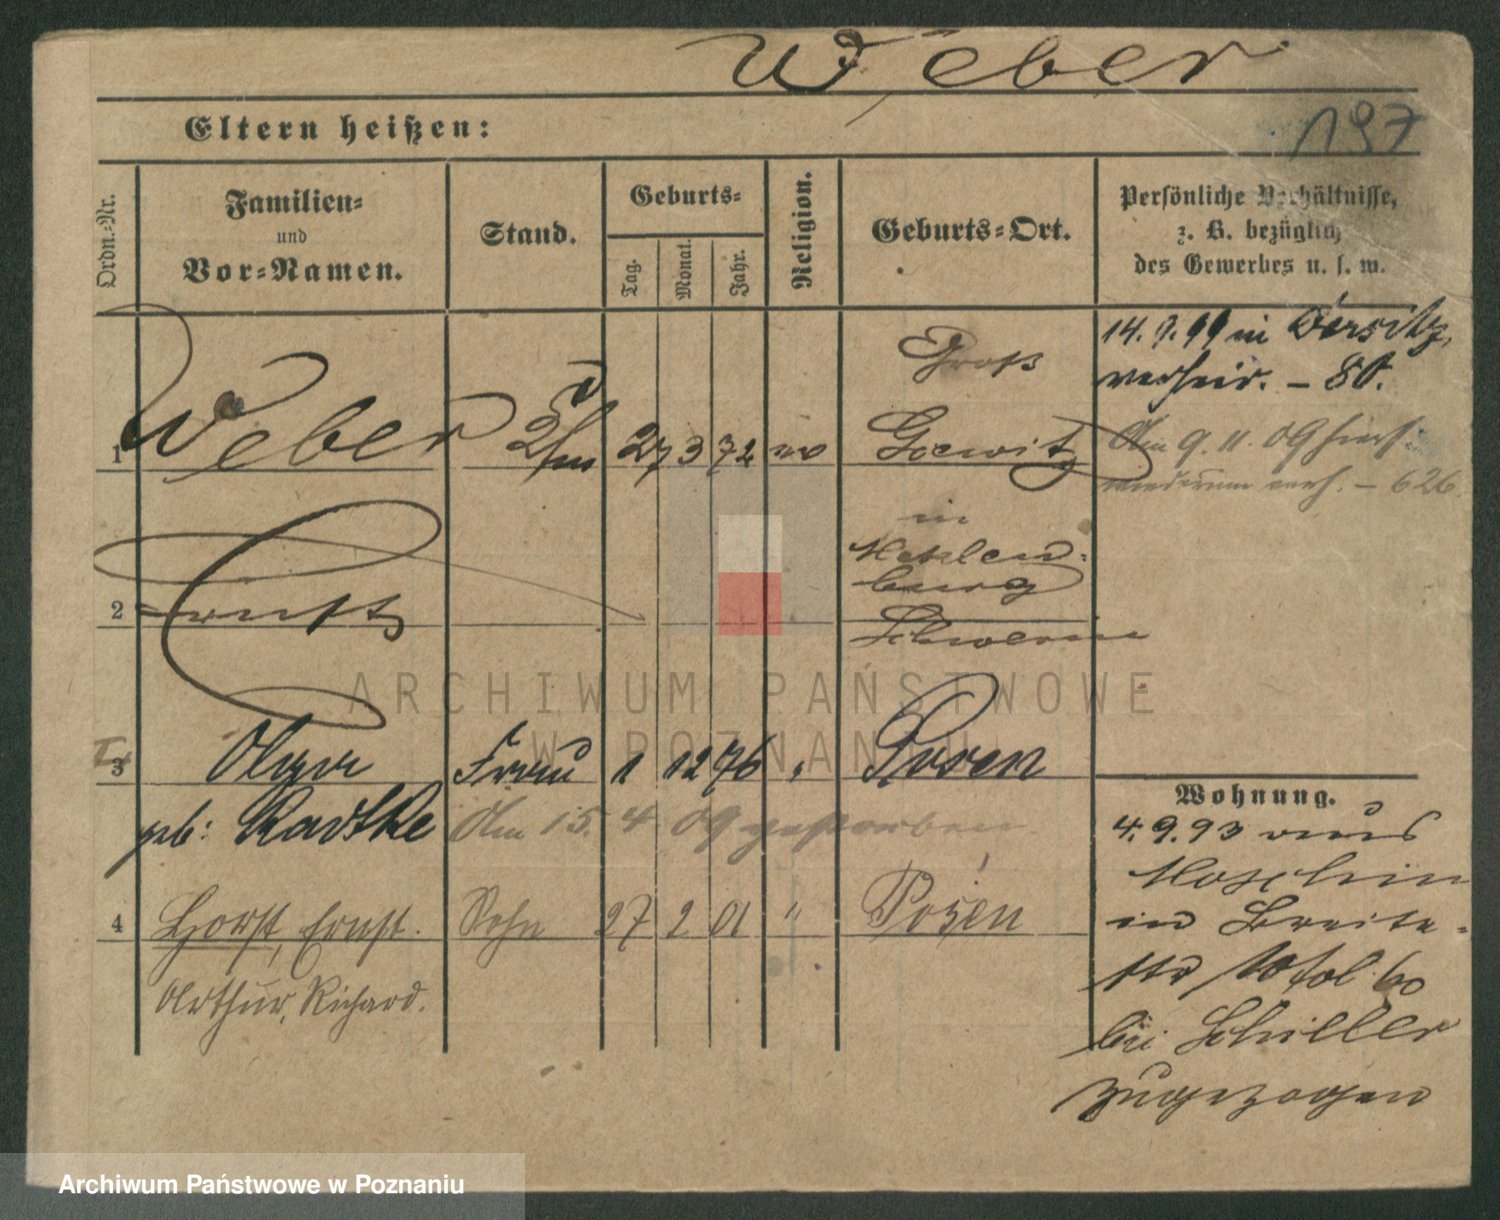 Weber
197
Eltern heißen:
Ordn.-Nr.
Familien-
und
Vor-Namen.
Stand.
Geburts-
Tag.
Monat.
Jahr.
Religion.
Geburts-Ort.
Persönliche Verhältnisse,
z. B. bezüglich
des Gewerbes u. s. w.
1 Weber 27 3 72 ev
Groß
in
Meklen-
burg
Schwerin
14. 9. 99 in Bersitz
verheir. – 80.
Am 9. 11. 09 hiers
wiederum verh. – 626
2 Ernst
3 Frau 1 12 76 " Posen
geb: Radtke Am 15. 4 09 gestorben
4 Horst, Ernst. Sohn 27 2 01 " Posen
Arthur, Richard.
Wohnung.
4. 9. 93 aus
in Breite-
str 60
bei Schiller
zugezogen
ARCHIWUM PAŃSTWOWE
W POZNANIU
Archiwum Państwowe w Poznaniu